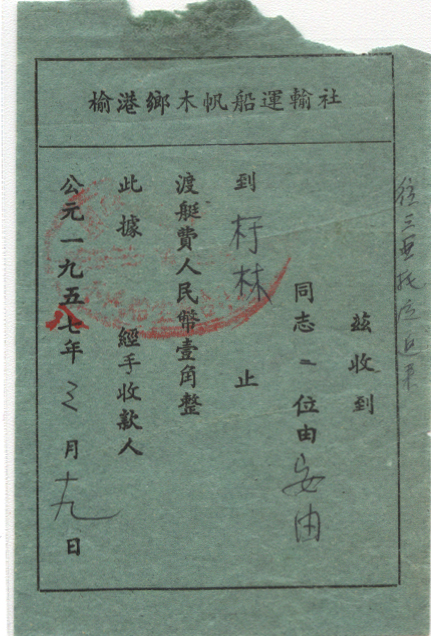 榆港鄉木帆船運輸社
茲收到
同志二位由安由
到籽林止
渡艇費人民幣壹角整
此據 經手收款人
公元一九五八七年三月十九日